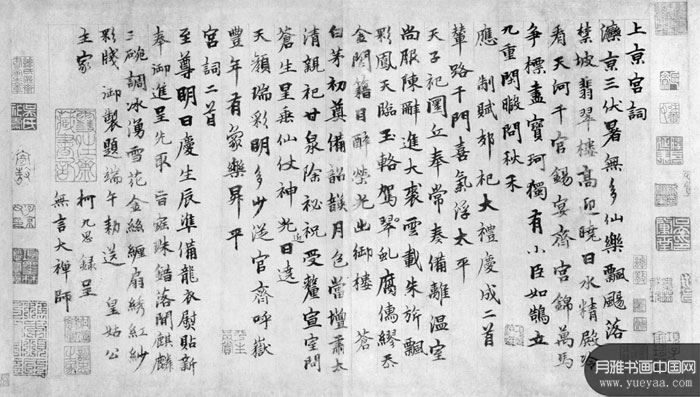 上京宮詞
灤京三伏暑無多仙樂飄颺落
禁坡翡翠樓高迎曉日水精殿冷
看天河千官錫宴齋宮錦萬馬
争標盡寶珂獨有小臣如鵠立
九重閒暇問秋禾
應 制賦郊祀大禮慶成二首
輦路千門喜氣浮太平
天子祀圜丘奉常奏備離温室
尚服陳辭進大裘雲載朱旂飄
影鳳天臨玉輅駕翠虬腐儒繆忝
金閨籍目醉榮光出御樓 蒼
白茅初奠備韶頀月色當壇肅太
清親祀甘泉除祕祝受釐宣室問
蒼生星垂仙仗神光近日遶
天顏瑞彩明多少從官齊呼嶽
豐年有象樂昇平
宮詞二首
至尊明日慶生辰準備龍衣熨貼新
奉御進呈先取旨珠錯落閒麒麟
三碗調冰湧雪花金絲纏扇綉紅紗
彩牋御製題端午勑送 皇姑公
主家
柯九思録呈
無言大禪師
月雅书画中国网
www.yueyaa.com